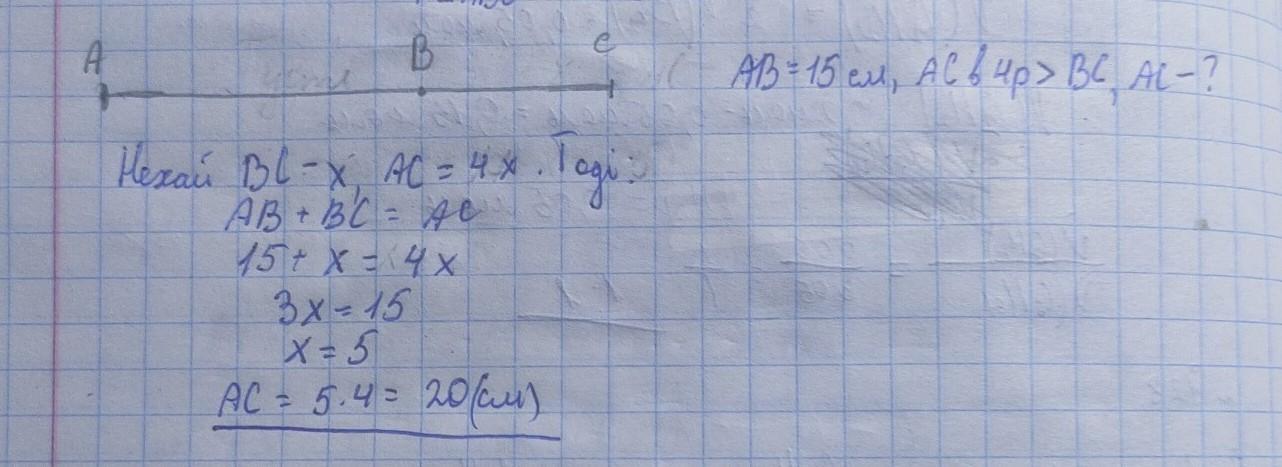 A B C
AB = 15 см, AC в 4р > BC, AC - ?
Нехай BC - x, AC = 4x. Тоді:
AB + BC = AC
15 + x = 4x
3x = 15
x = 5
AC = 5 · 4 = 20 (см)